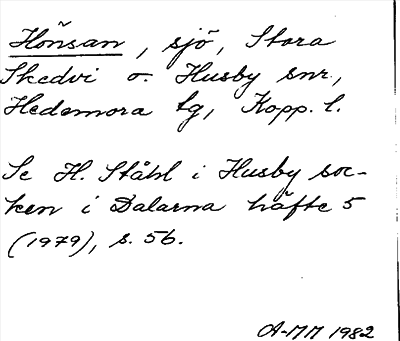 Hönsan, sjö, Stora
Skedvi o. Husby snr,
Hedemora tg, Kopp. l.
Se H. Ståhl i Husby soc-
ken i Dalarna häfte 5
(1979), s. 56.
A-MM 1982